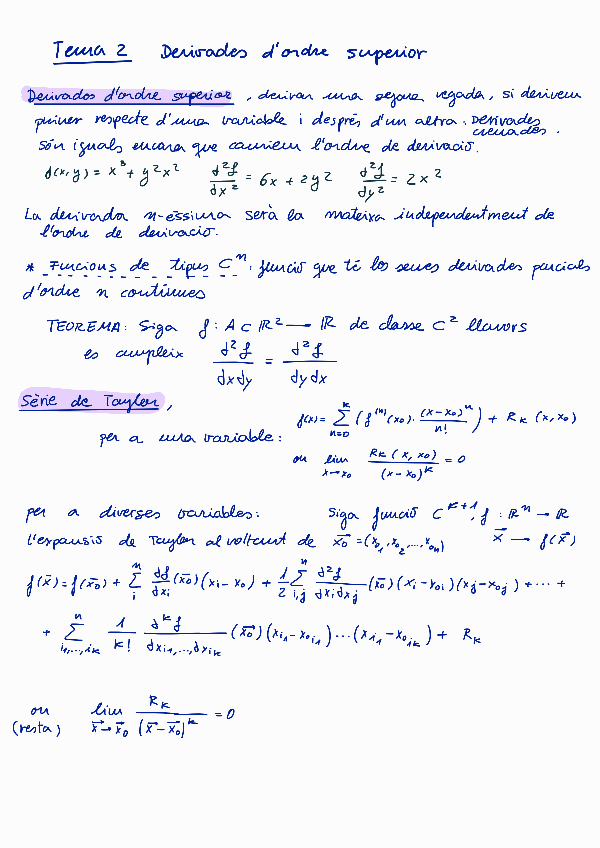 Tema 2 Derivades d'ordre superior
Derivades d'ordre superior, derivar una segona vegada, si derivem
primer respecte d'una variable i després d'un altra. Derivades creuades.
són iguals encara que canviem l'ordre de derivació.
f(x,y) = x³ + y²x² d²f/dx² = 6x + 2y² d²f/dy² = 2x²
La derivada n-èssima serà la mateixa independentment de
l'ordre de derivació.
* Funcions de tipus Cⁿ: funció que té les seues derivades parcials
d'ordre n contínues
TEOREMA: Siga f: A ⊂ ℝ² → ℝ de classe C² llavors
es cumpleix d²f/dxdy = d²f/dydx
Sèrie de Taylor,
per a una variable: f(x) = Σ_{n=0}^{k} (f⁽ⁿ⁾(x₀) · (x-x₀)ⁿ/n!) + R_k(x, x₀)
on lim_{x→x₀} R_k(x, x₀)/(x-x₀)^k = 0
per a diverses variables: Siga funció C^{k+1}, f: ℝⁿ → ℝ
l'expansió de Taylor al voltant de x⃗₀ = (x₀₁, x₀₂, ..., x₀ₙ) x⃗ → f(x⃗)
f(x̄) = f(x⃗₀) + Σ_i^n df/dx_i (x⃗₀)(x_i - x₀) + 1/2 Σ_{i,j}^n d²f/dx_i dx_j (x⃗₀)(x_i - x_{0i})(x_j - x_{0j}) + ... +
+ Σ_{i₁,...,i_k}^n 1/k! d^k f/dx_{i₁},...,dx_{i_k} (x⃗₀)(x_{i₁} - x_{0i₁}) ... (x_{i₁} - x_{0i_k}) + R_k
on lim_{x⃗→x⃗₀} R_k/(x⃗-x⃗₀)^k = 0
(resta)